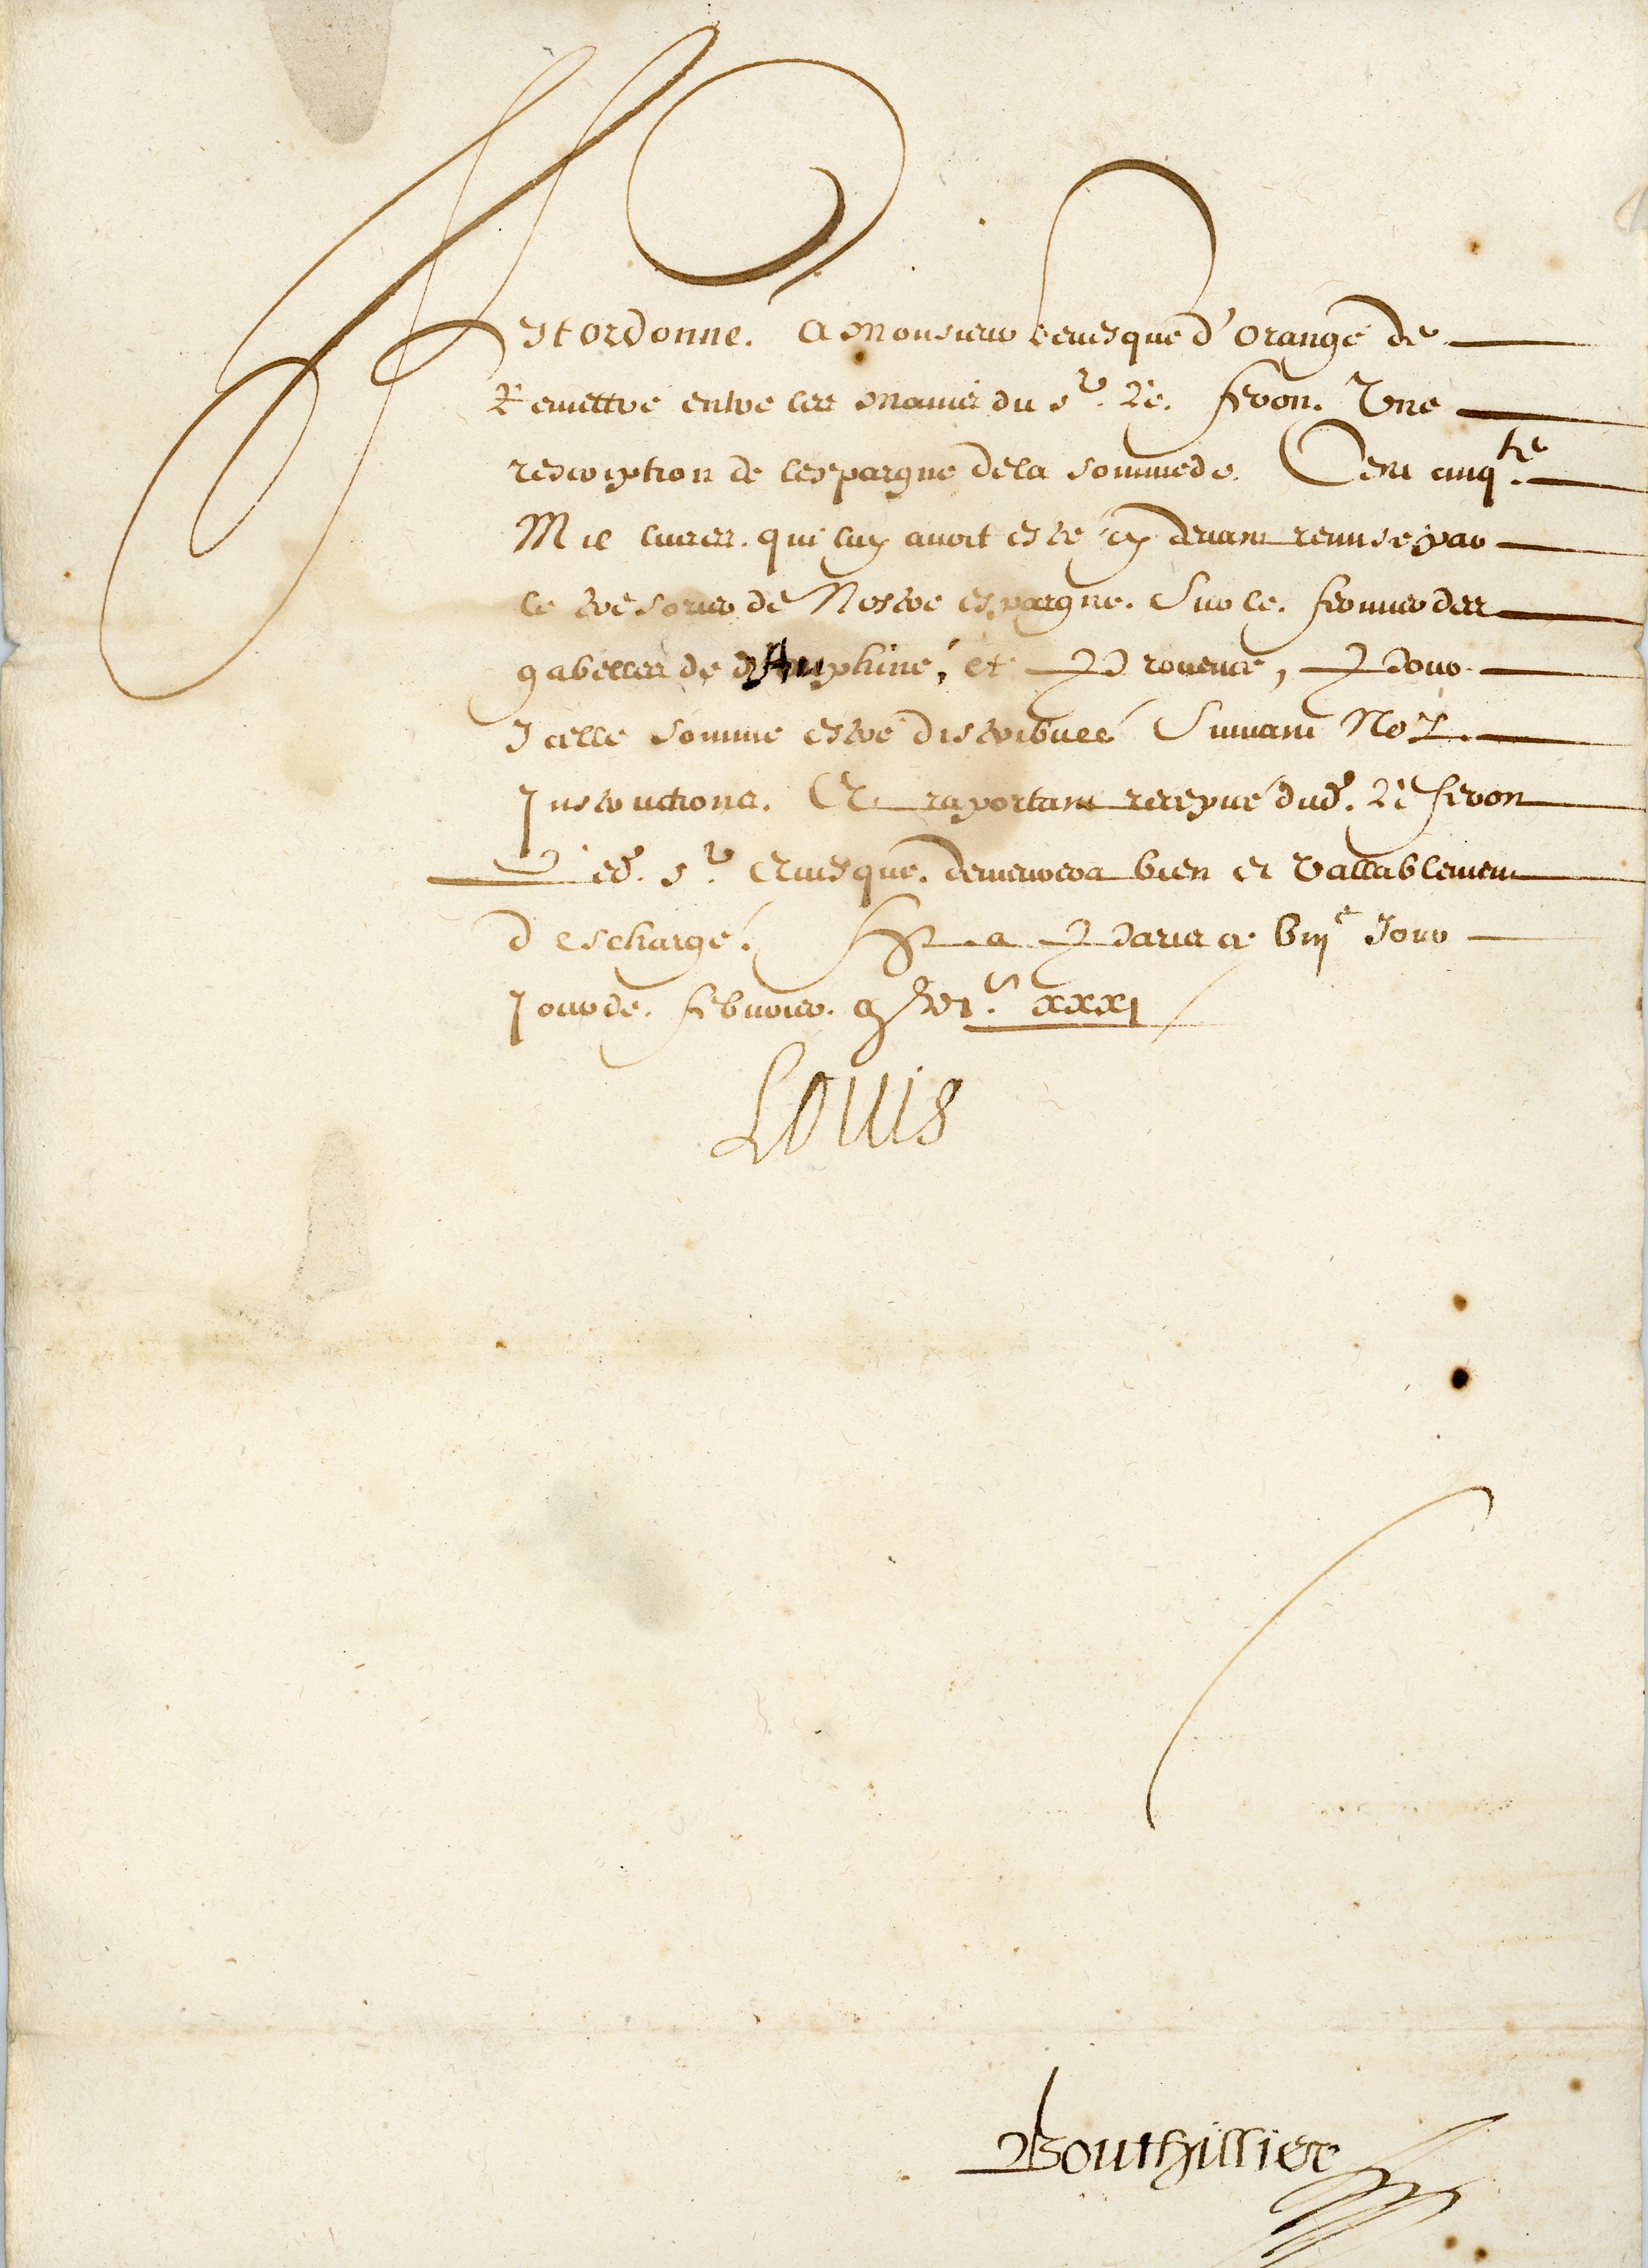 Il est ordonné. A Monsieur levesque d'orange de
Remettre entre les mains du sr. le. feron. Une
rescription de lespargne de la somme de. Cent cinqte.
Mil livres. qui luy avoit esté cy devant remise par
le tresorier de Nostre espargne. Sur le. fermier des
gabelles de dauphiné, et Provence, Pour
Icelle somme estre distribuée Suivant Noz.
Instructions. Et raportant recepicé dud. le feron
Led. sr. Evesque. demeurera bien et vallablement
deschargé. fait a Paris ce viije Jour
Jour de. febvrier. gbic. xxxj
Louis
Bouthillier